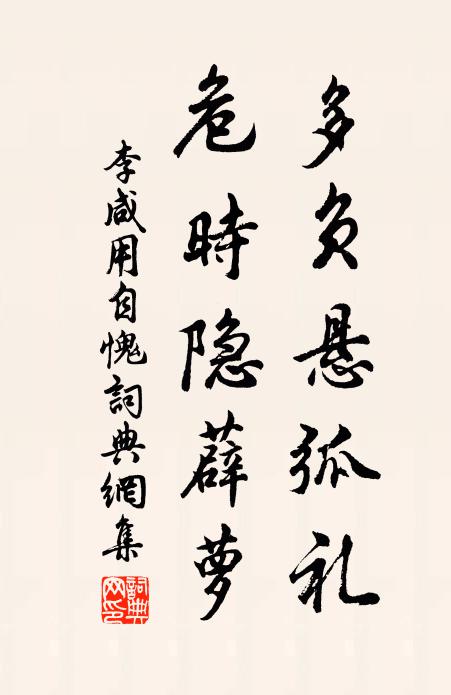 多负悬弧礼
危時隐薜萝
李咸用自愧詞典網集
詞典網印